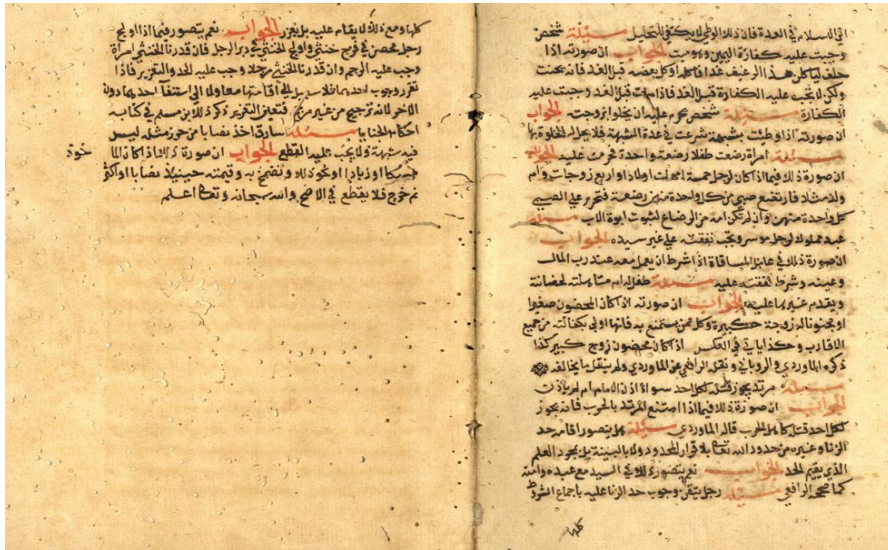 افي السلام في العدة فان ذلك الوطي لا يكفي للتحليل مسئلة شخص
وجبت عليه كفارة اليمين ويومت الجواب ان صورته اذا
حلف لياكلن هذا الرغيف غدا فاكله او كل بعضه قبل الغد فانه يحنث
ولكن لا تجب عليه الكفارة قبل الغد فاذا مات قبل الغد وجبت عليه
الكفارة مسئلة شخص محرم عليه ان يخلو بزوجته الجواب
ان صورته اذا وطئت بشبهة شرعت في عدة الشبهة فلا يحل له الخلوة بها
مسئلة امراة رضعت طفلا رضعة واحدة فحرمت عليه الجواب
ان صورة ذلك فيما اذا كان لرجل خمسة امهات اولاد او اربع زوجات وام
ولد مثلا فارتضع صبي من كل واحدة منهن رضعة فتحرم على الصبي
كل واحدة منهن وان لم تكن امه من الرضاع لثبوت ابوة الاب مسئلة
عبد مملوك لرجل موسر وتجب نفقته على غير سيده الجواب
ان صورة ذلك في عامل المساقاة اذا شرط ان يعمل معه عبد رب المال
وعينه وشرط نفقته عليه مسئلة طفل له ام متاهلة لحضانة
ويقدم غيرها عليه الجواب ان صورته اذا كان المحضون صغيرا
او مجنونا له زوجة كبيرة وكل ممن يستمتع به فانها اولى بكفالته من جميع
الاقارب وكذا ياتي في العكس اذا كان محضون زوج كبير كذا
ذكره الماوردي والروياني ونقله الرافعي عن الماوردي ولم ينقل ما يخالفه
مسئلة مرتد يجوز قتله لكل احد سواء اذن الامام ام لم ياذن
الجواب ان صورة ذلك فيما اذا امتنع المرتد بالحرب فانه يجوز
لكل احد قتله كاهل الحرب قاله الماوردي مسئلة هل يتصور اقامة حد
الزنا وغيره من حدود الله تعالى بلا اقرار المحدود ولا بالبينة بل بمجرد العلم
الذي يقيم الحد الجواب نعم يتصور ذلك في السيد مع عبده وامته
كما صححه الرافعي مسئلة رجل تيقن وجوب حد الزنا عليه باجماع الشروط
كلها
كلها ومع ذلك لا يقام عليه بل يعزر الجواب نعم يتصور فيما اذا اولج
رجل محصن في فرج خنثى واولج الخنثى في دبر الرجل فان قدرنا الخنثى امراة
وجب عليه الرجم وان قدرنا الخنثى رجلا وجب عليه الحد والتعزير فاذا
تقرر وجوب احدهما فلا سبيل الى اقامتهما معا ولا الى استيفاء احدهما دون
الاخر لانه ترجيح من غير مرجح فتعين التعزير ذكر ذلك ابن مسلم في كتابه
احكام الخناثا مسئلة سارق اخذ نصابا من حرز مثله ليس
فيه شبهة ولا يجب عليه القطع الجواب ان صورة ذلك اذا كان المال
مسكا او زبادا او نحو ذلك وتضمخ به وقيمته حينئذ نصابا او اكثر
ثم خرج فلا يقطع في الاصح والله سبحانه وتعالى اعلم